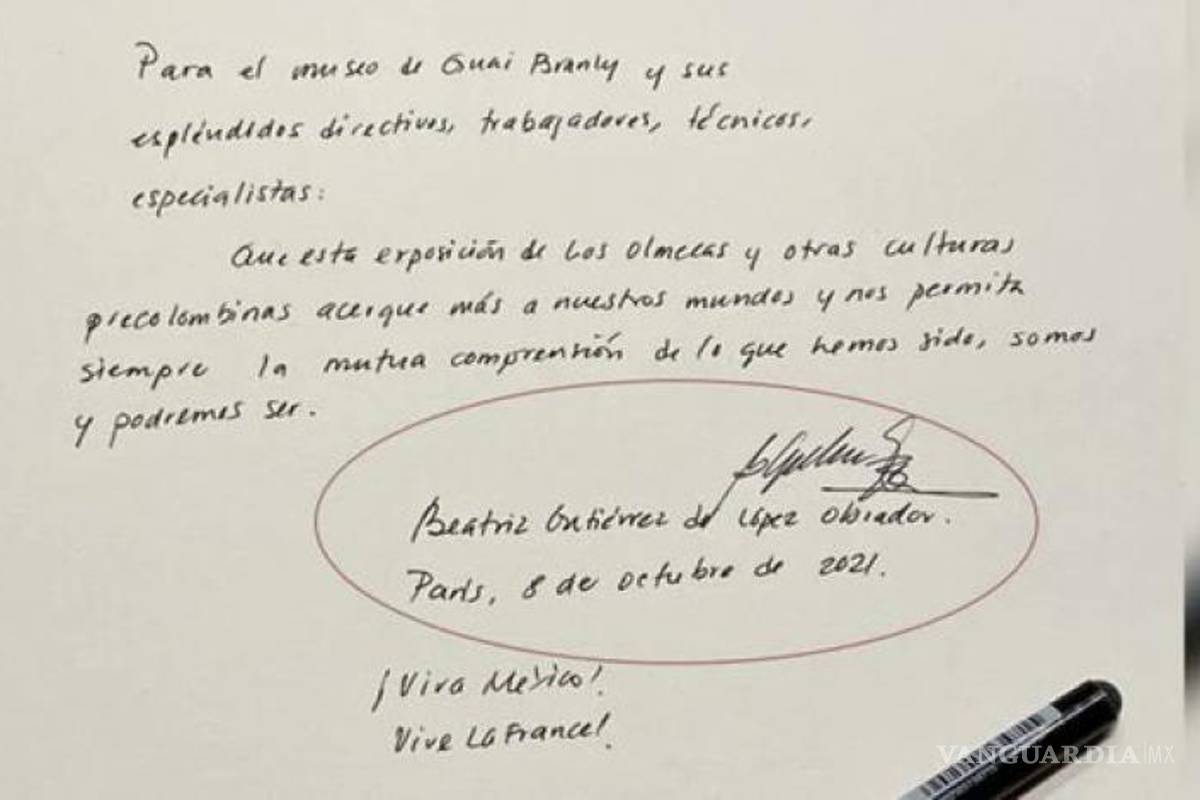 Para el museo de Quai Branly y sus
espléndidos directivos, trabajadores, técnicos,
especialistas:
Que esta exposición de los Olmecas y otras culturas
precolombinas acerque más a nuestros mundos y nos permita
siempre la mutua comprensión de lo que hemos sido, somos
y podremos ser.
Beatriz Gutiérrez de López Obrador.
París, 8 de octubre de 2021.
¡Viva México!
Vive La France!
VANGUARDIA|MX